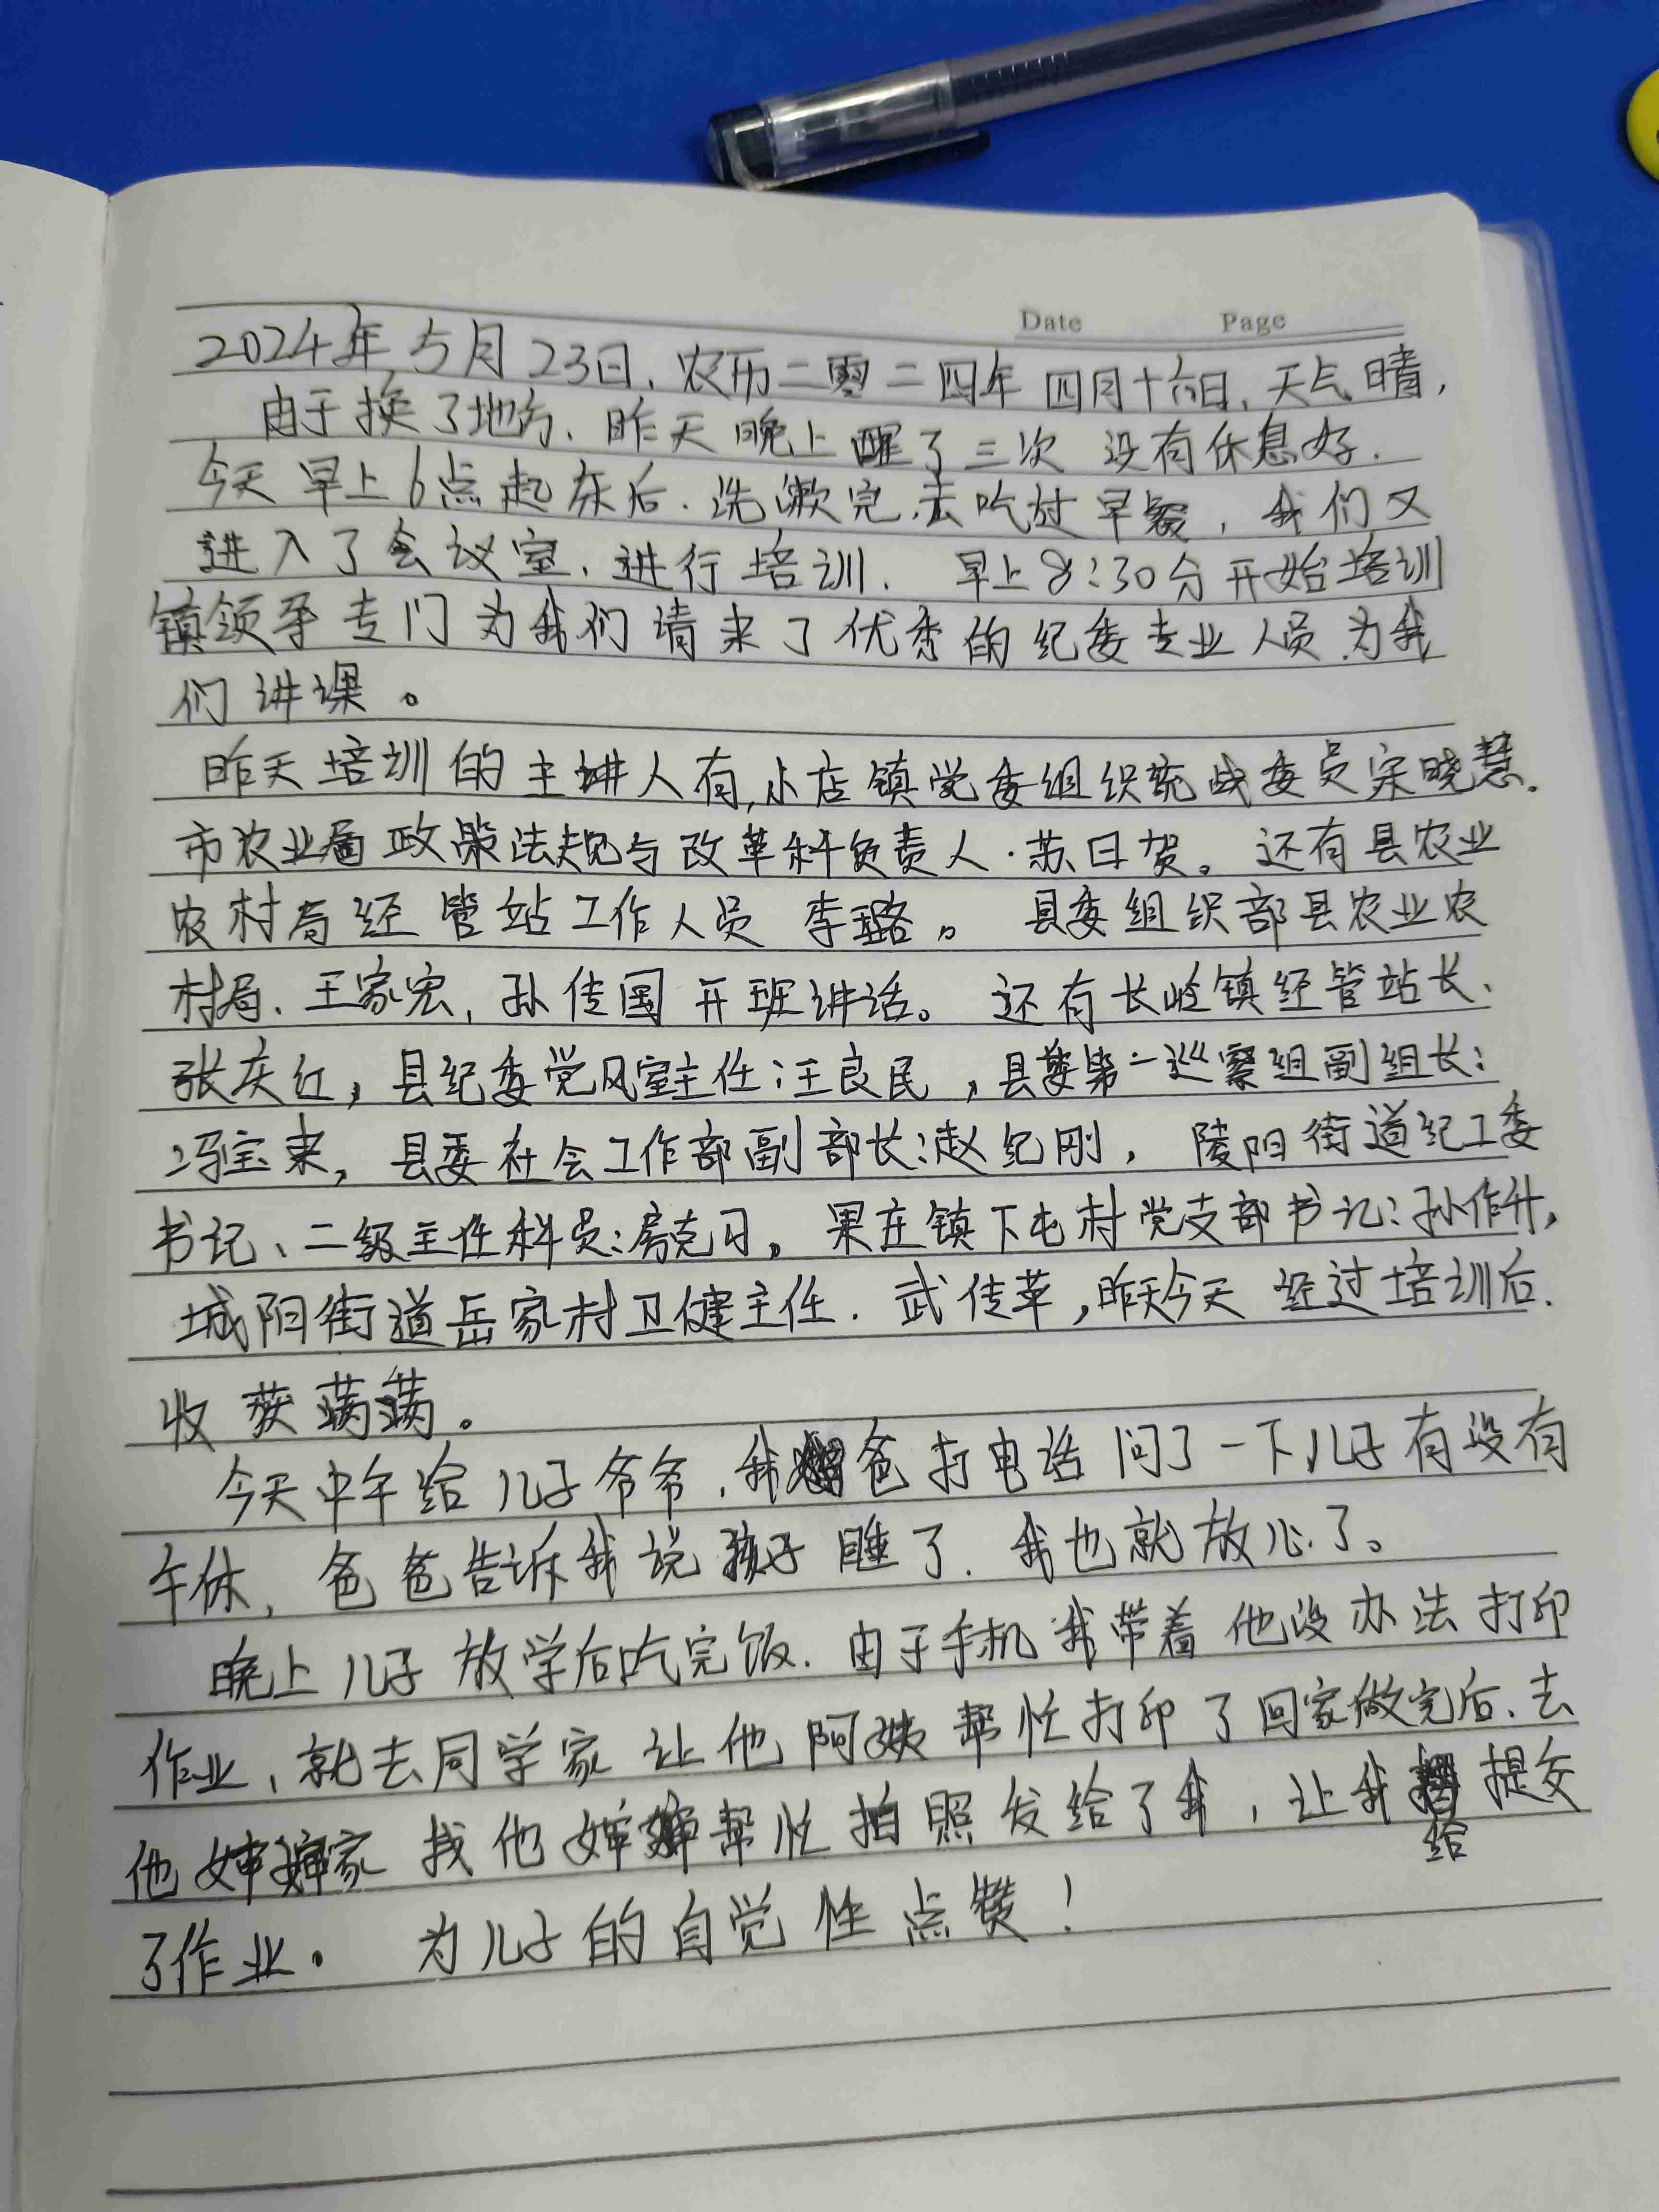 Date Page
2024年5月23日，农历二零二四年四月十六日，天气晴，
由于换了地方、昨天晚上醒了三次 没有休息好.
今天早上6点起床后.洗漱完,去吃过早餐，我们又
进入了会议室、进行培训. 早上8:30分开始培训
镇领导专门为我们请来了优秀的纪委专业人员为我
们讲课。
昨天培训的主讲人有,小店镇党委组织统战委员宋晓慧.
市农业局政策法规与改革科负责人·苏日贺。还有县农业
农村局经管站工作人员 李璐。 县委组织部县农业农
村局、王家宏,孙传国开班讲话。还有长岭镇经管站长、
张庆红，县纪委党风室主任:王良民，县委第一巡察组副组长:
冯宝来，县委社会工作部副部长:赵纪刚，陵阳街道纪工委
书记、二级主任科员:房克习。果庄镇下屯村党支部书记:孙作升,
城阳街道岳家村卫健主任.武传革,昨天今天 经过培训后.
收获满满。
今天中午给儿子爷爷.我爸打电话问了一下儿子有没有
午休,爸爸告诉我说孩子睡了.我也就放心了。
晚上儿子放学后吃完饭.由于手机我带着他没办法打印
作业，就去同学家让他阿姨帮忙打印了回家做完后、去
他婶婶家找他婶婶帮忙拍照发给了我，让我给提交
了作业。 为儿子的自觉性点赞！